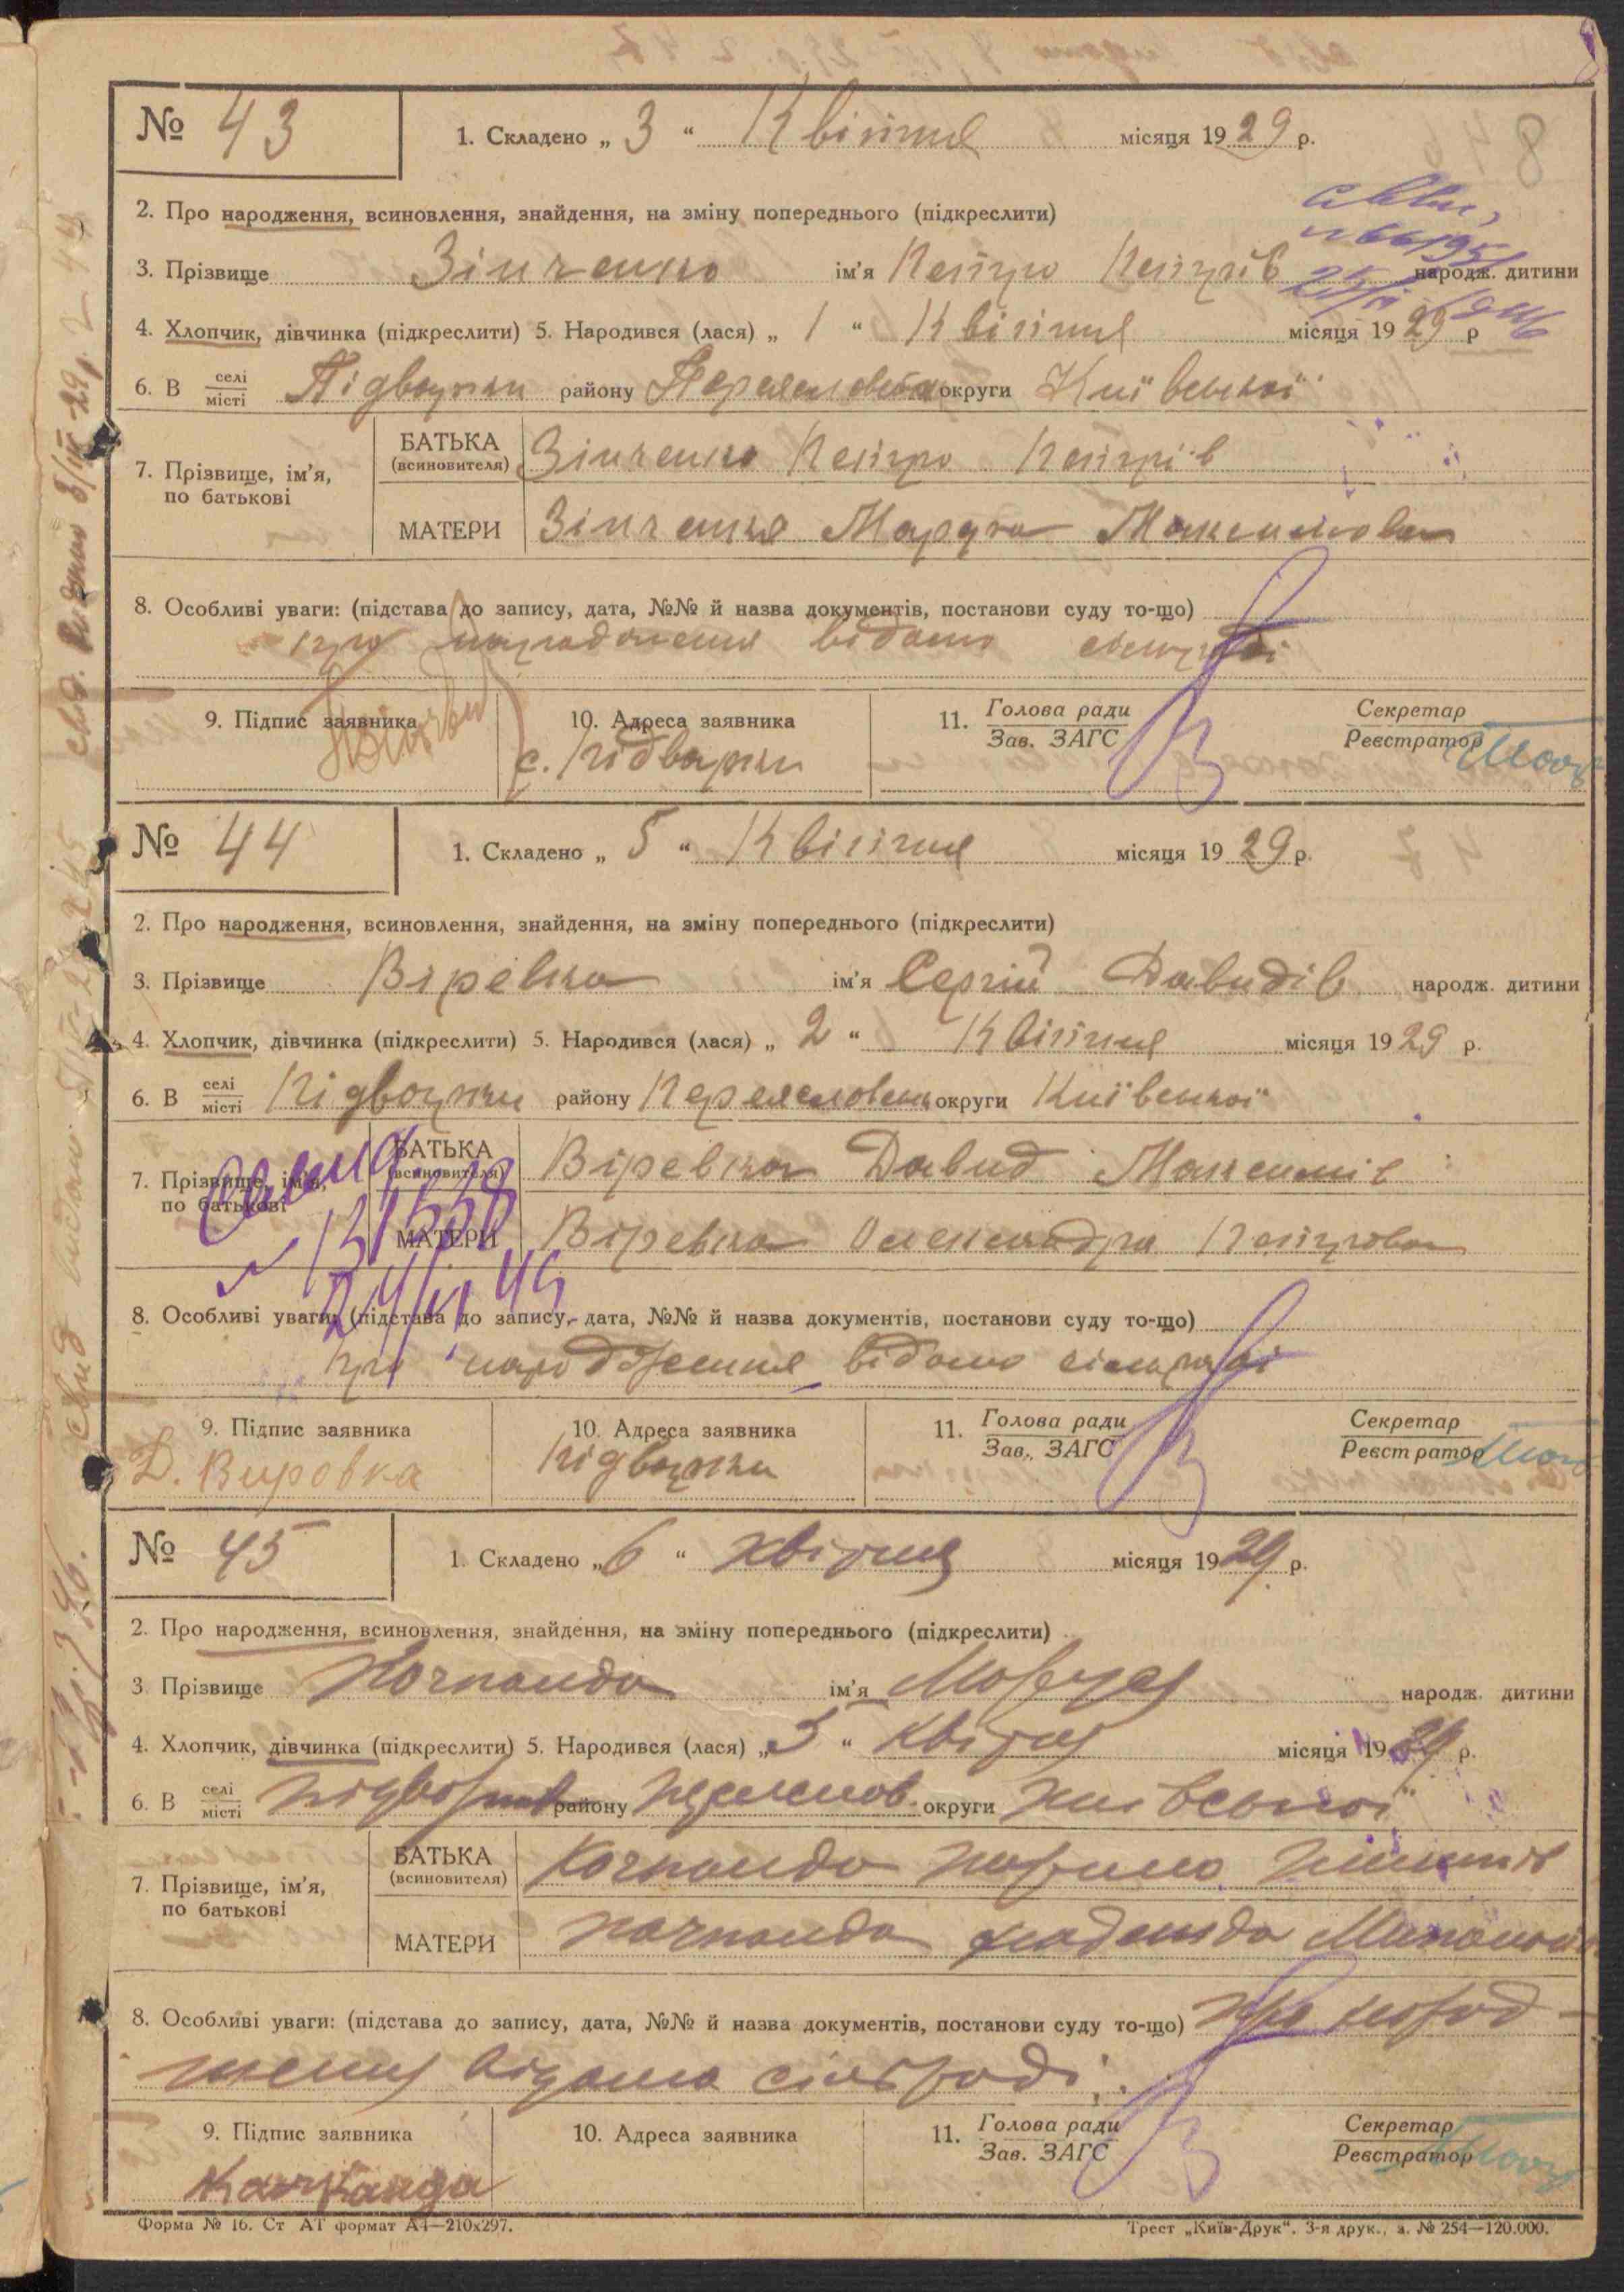 № 43
1. Складено „ 3 “ Квітня місяця 1929 р.
2. Про народження, всиновлення, знайдення, на зміну попереднього (підкреслити)
3. Прізвище Зінченко ім'я Петро Петрів народж. дитини
4. Хлопчик, дівчинка (підкреслити) 5. Народився (лася) „ 1 “ Квітня місяця 1929 р
6. В селі місті Підварки району Переяславськ округи Київської
7. Прізвище, ім'я, по батькові
БАТЬКА (всиновителя) Зінченко Петро Петрів
МАТЕРИ Зінченко Максимова
8. Особливі уваги: (підстава до запису, дата, №№ й назва документів, постанови суду то-що)
про народження відомо сільраді
9. Підпис заявника
10. Адреса заявника
с. Підварки
11. Голова ради Зав. ЗАГС
Секретар Реєстратор
№ 44
1. Складено „ 5 “ Квітня місяця 1929 р.
2. Про народження, всиновлення, знайдення, на зміну попереднього (підкреслити)
3. Прізвище Віревка ім'я Сергій Давидів народж. дитини
4. Хлопчик, дівчинка (підкреслити) 5. Народився (лася) „ 2 “ Квітня місяця 1929 р.
6. В селі місті Підварки району Переяславськ округи Київської
7. Прізвище, ім'я, по батькові
БАТЬКА (всиновителя) Віревка Давид Максимів
МАТЕРИ Віревка Олександра Петрова
8. Особливі уваги: (підстава до запису, дата, №№ й назва документів, постанови суду то-що)
про народження відомо сільраді
9. Підпис заявника
Д. Вировка
10. Адреса заявника
Підварки
11. Голова ради Зав. ЗАГС
Секретар Реєстратор
№ 45
1. Складено „ 6 “ квітня місяця 1929 р.
2. Про народження, всиновлення, знайдення, на зміну попереднього (підкреслити)
3. Прізвище Качканда ім'я Маруся народж. дитини
4. Хлопчик, дівчинка (підкреслити) 5. Народився (лася) „ 5 “ квітня місяця 1929 р.
6. В селі місті Підварках району Переяслов. округи Київської
7. Прізвище, ім'я, по батькові
БАТЬКА (всиновителя) Качканда
МАТЕРИ Качканда
8. Особливі уваги: (підстава до запису, дата, №№ й назва документів, постанови суду то-що) про народ-
ження відомо сільраді
9. Підпис заявника
Качканда
10. Адреса заявника
11. Голова ради Зав. ЗАГС
Секретар Реєстратор
Форма № 16. Ст АТ формат А4—210х297.
Трест „Київ-Друк“. 3-я друк., з. № 254—120.000.